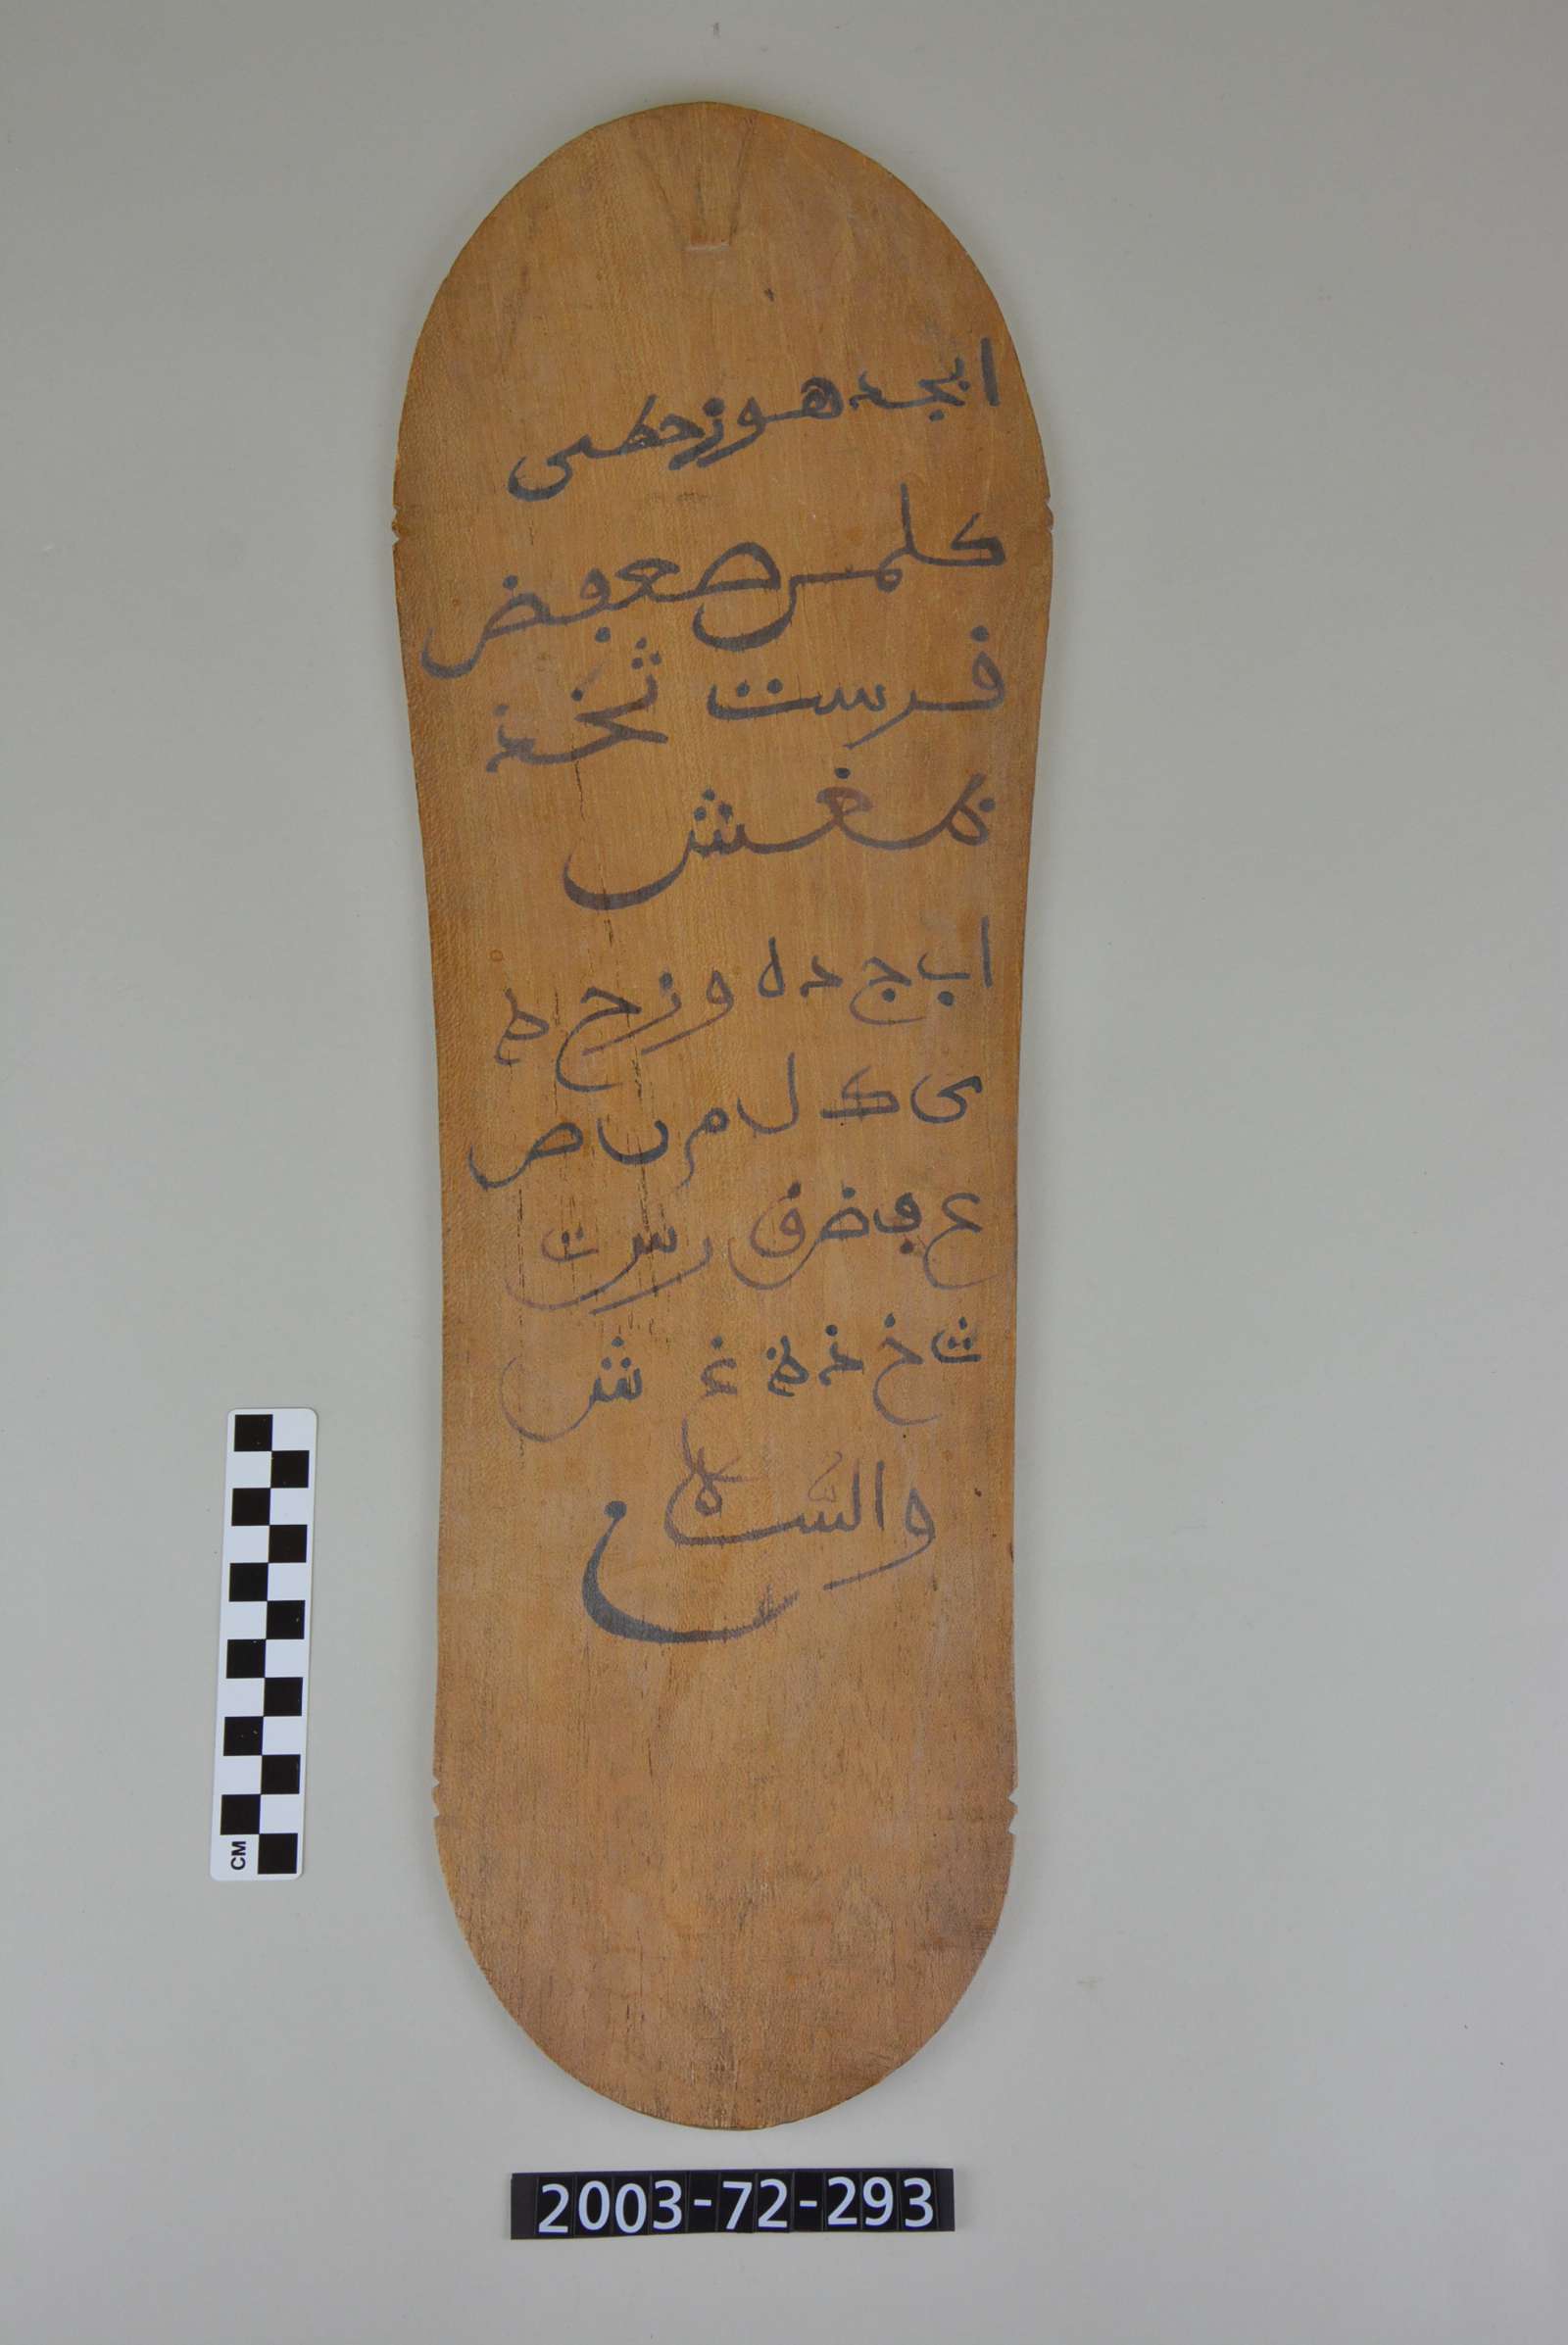 ابجد هوز حطى
كلمں صعڢض
فرست ثخذ
ظغش
ا ب ج د ه و ز ح ط
ى ک ل م ں ص
ع ڢ ض ف ر س ت
ث خ ذ ظ غ ش
والسّلام
CM
2003-72-293